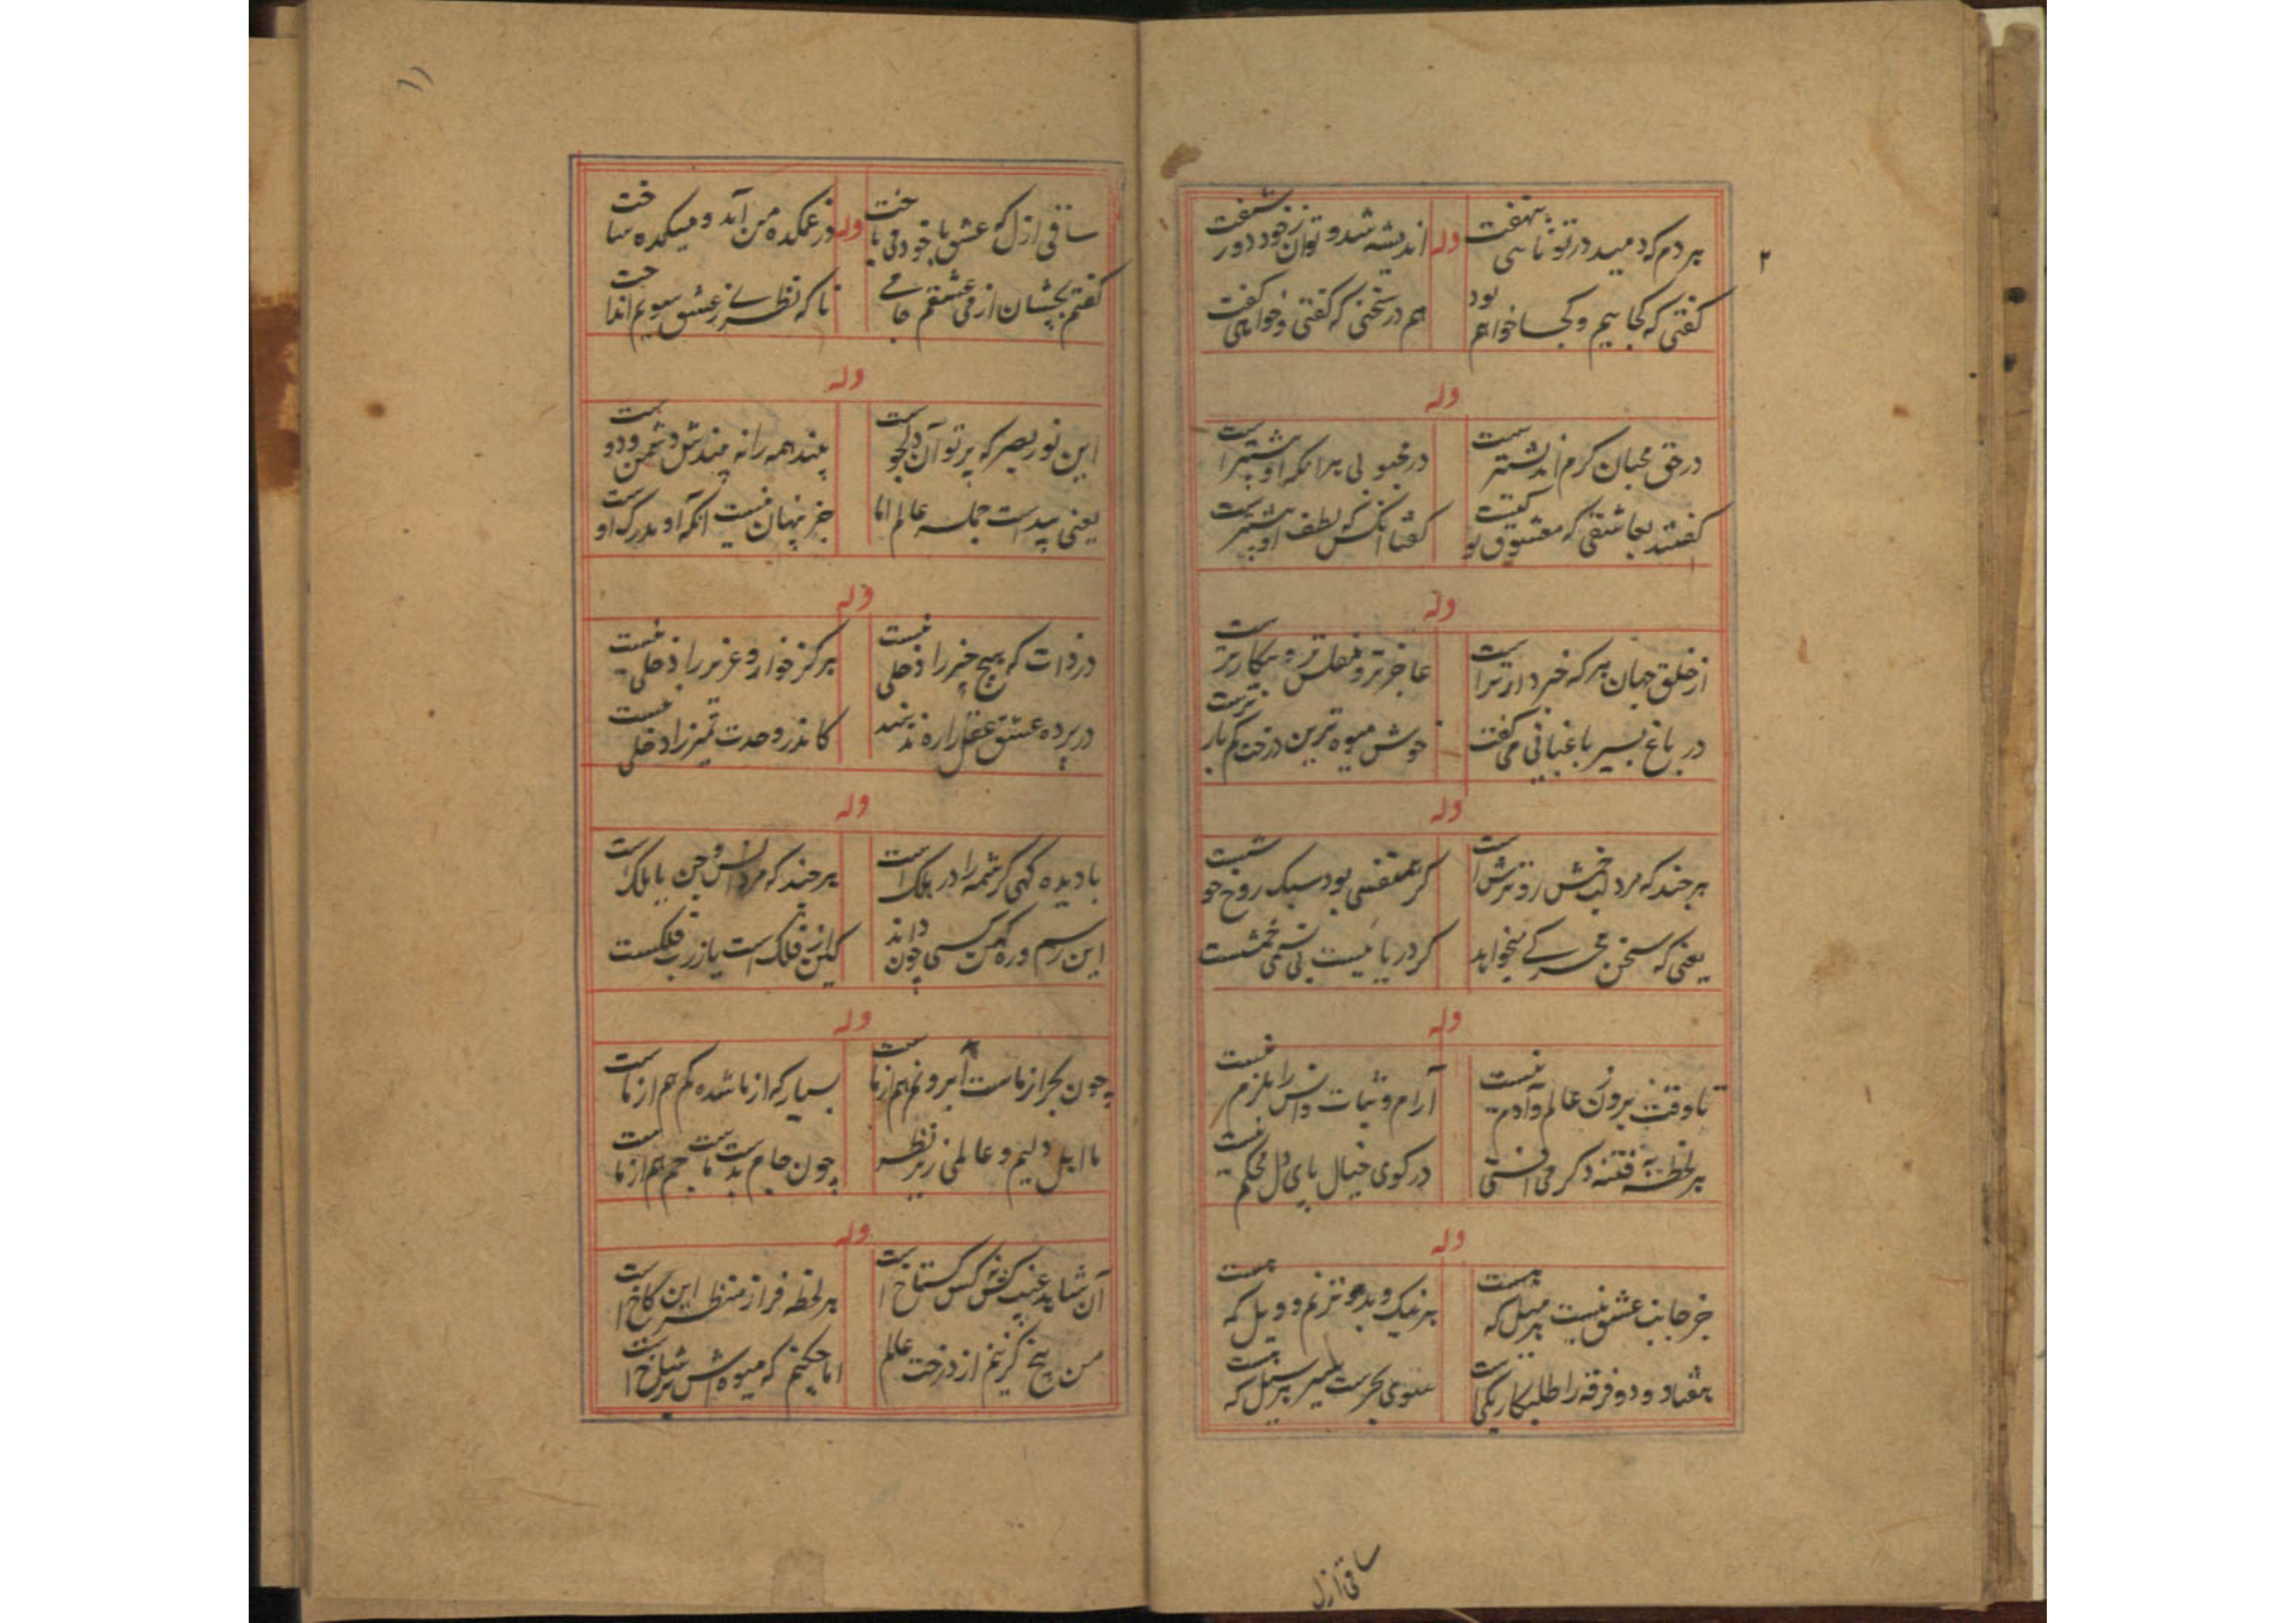 ۲
هر دم که دمید در تو تا سی بنهفت
وله
اندیشه شد و توان ز خود دور شنفت
گفتی که کجاییم و کجا خواهم بود
هم در سخنی که گفتی و خواهی گفت
وله
در حق محبان کرم اندیشتر ست
در محبوبی هر آنکه او پیشتر است
گفتند بعاشقی که معشوق تو کیست
گفتا آنکس که لطف او بیشتر ست
وله
از خلق جهان هر که خبردارتر است
عاجزتر و مفلس تر و بیکارتر ست
در باغ بسیر باغبانی می گفت
خوش میوه ترین درخت کم بارترست
وله
هر چند که مرد لب خمش رو ترش است
گر متقی بود سبک روح خو
یعنی که سخن محرکی میخواهد
گر دریا نیست بی خمشست
وله
تا وقت برون ز عالم و آدم نیست
آرام و ثبات و انس را بلزم نیست
هر لحظه به فتنه دگر می افتی
در کوی خیال پای دل محکم نیست
وله
جز جانب عشق نیست هر میل که هست
هر نیک و بد و ترنم و ویل که هست
هفتاد و دو فرقه را طلبکار یکی است
سوی بحرست سیر هر سیل که هست
ساقی ازل
۱۱
ساقی ازل که عشق با خود می باخت
وله
در غمکده من آمد و میکده ساخت
گفتم بچشان از می عشقم جامی
تا که نظری ز عشق سویم انداخت
وله
این نور بصر که پرتو آن دلجوست
بیند همه را نه بیندش دشمن و دوست
یعنی پیداست جمله عالم اما
جز پنهان نیست آنکه او مدرک اوست
وله
در ذات که هیچ چیز را دخلی نیست
هرگز خوار و عزیز را دخلی نیست
در پرده عشق عقل را ره ندهند
کاندر وحدت تمیز را دخلی نیست
وله
با دیده گهی کرشمه را در بلک است
هر چند که مرد انس و جن یا ملک است
این رسم و ره کهن کسی چون داند
کین از فلک است یا ز رب فلکست
وله
چون بحر از ماست ابر و نم هم از ماست
بسیار که از ما شده کم هم از ماست
ما اهل دلیم و عالمی زیر نظر
چون جام بدست ماست جم هم از ماست
وله
آن شاهد غیب کش نه کس گستاخ است
هر لحظه فراز منظر این کاخ است
من بیخ گزینم از درخت عالم
اما چکنم که میوه اش بر شاخ است